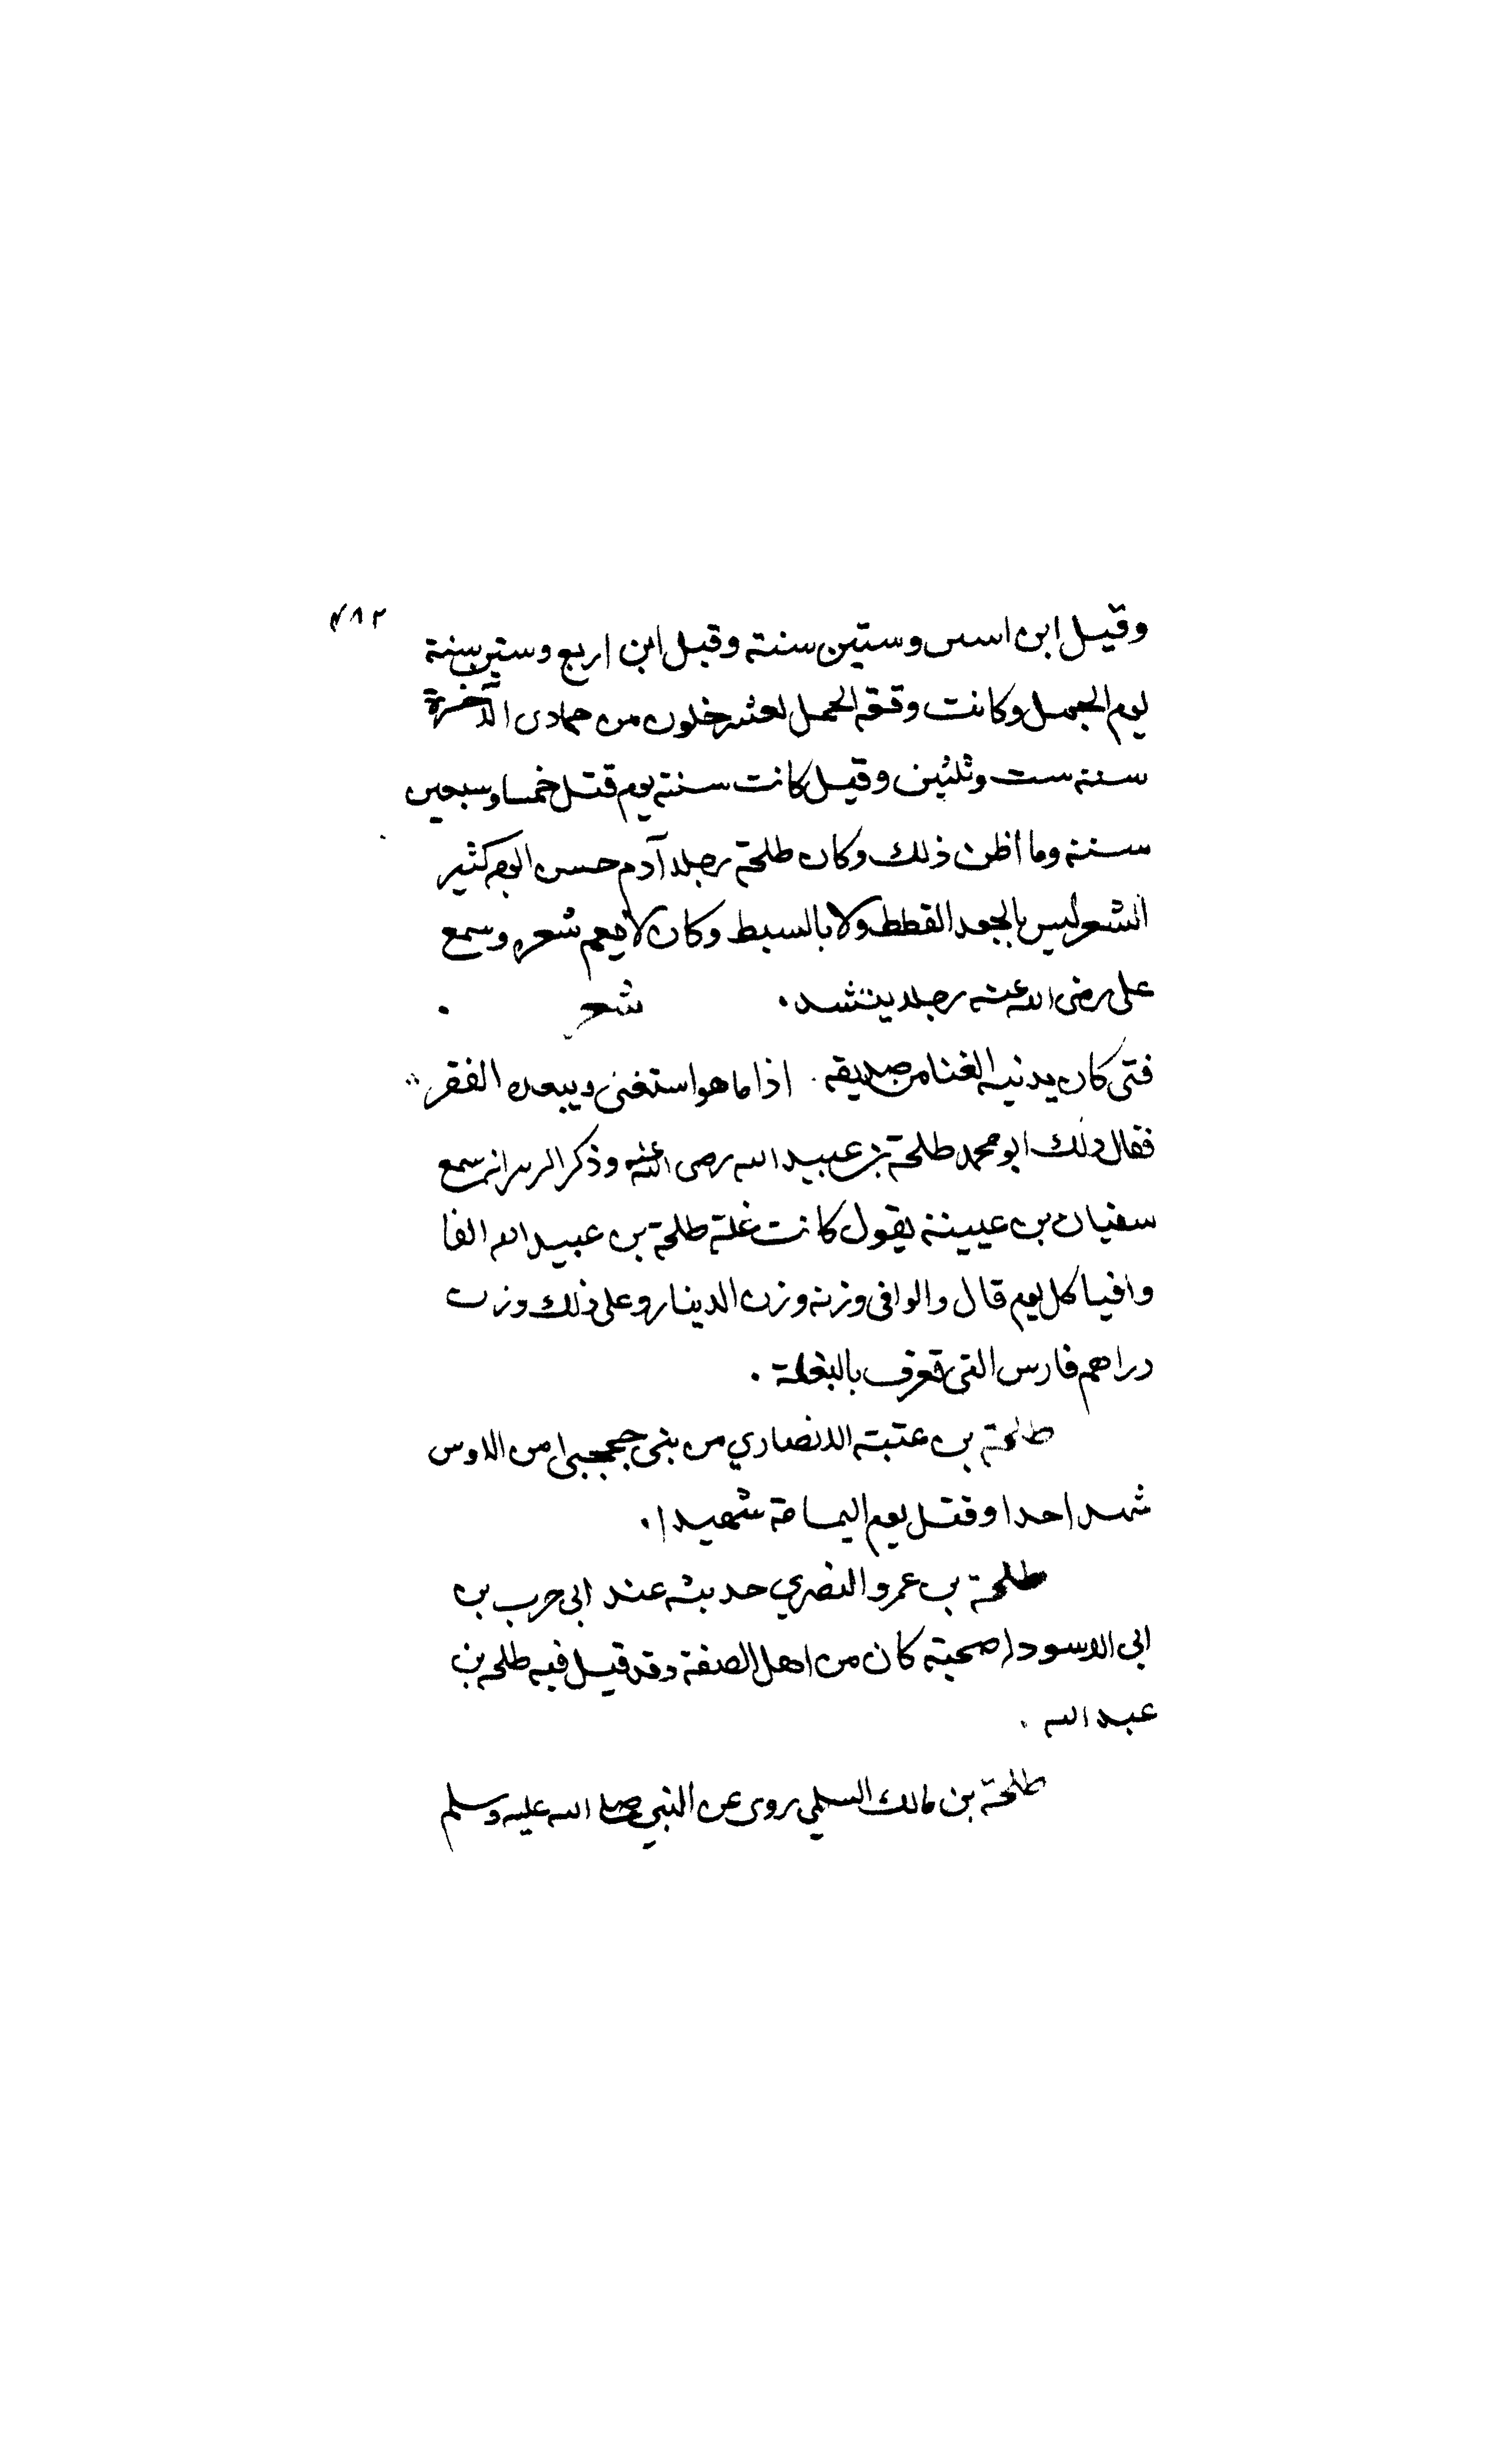 ٤٨٢
وقيل ابن اسس وستين سنة وقيل ابن اربع وستين سنة
يوم الجمل وكانت وقعة الجمل لعشر خلون من جمادى الآخرة
سنة ست وثلثين وقيل كانت سنه يوم قتل خمسا وسبعين
سنة وما اظن ذلك وكان طلحة رجلا آدم حسن الوجه كثير
الشعر ليس بالجعد القطط ولا بالسبط وكان لا شعره وسمع
على رضى الله عنه رجلا ينشد . شعر .
فتى كان يدنيه الغنا من صديقه . اذا ما هو استغنى ويبعده الفقر
فقال ذلك ابو محمد طلحة بن عبيد الله رضى الله عنه وذكر انه سمع
سفيان بن عيينة يقول كانت غلة طلحة بن عبيد الله الفا
وافيا كل يوم قال والوافى وزنه وزن الدينار وعلى ذلك وزن
دراهم فارس التى تعرف بالبغلة .
طلحة بن عتبة الانصاري من بنى جحجبى من الاوس
شهد احدا وقتل يوم اليمامة شهيدا .
طلحة بن عمرو النصري حديثه عند ابى حرب بن
ابى الاسود صحبته كان من اهل الصفة وقد قيل فيه طلحة بن
عبد الله .
طلحة بن مالك السلمي روى عن النبي صلى الله عليه وسلم